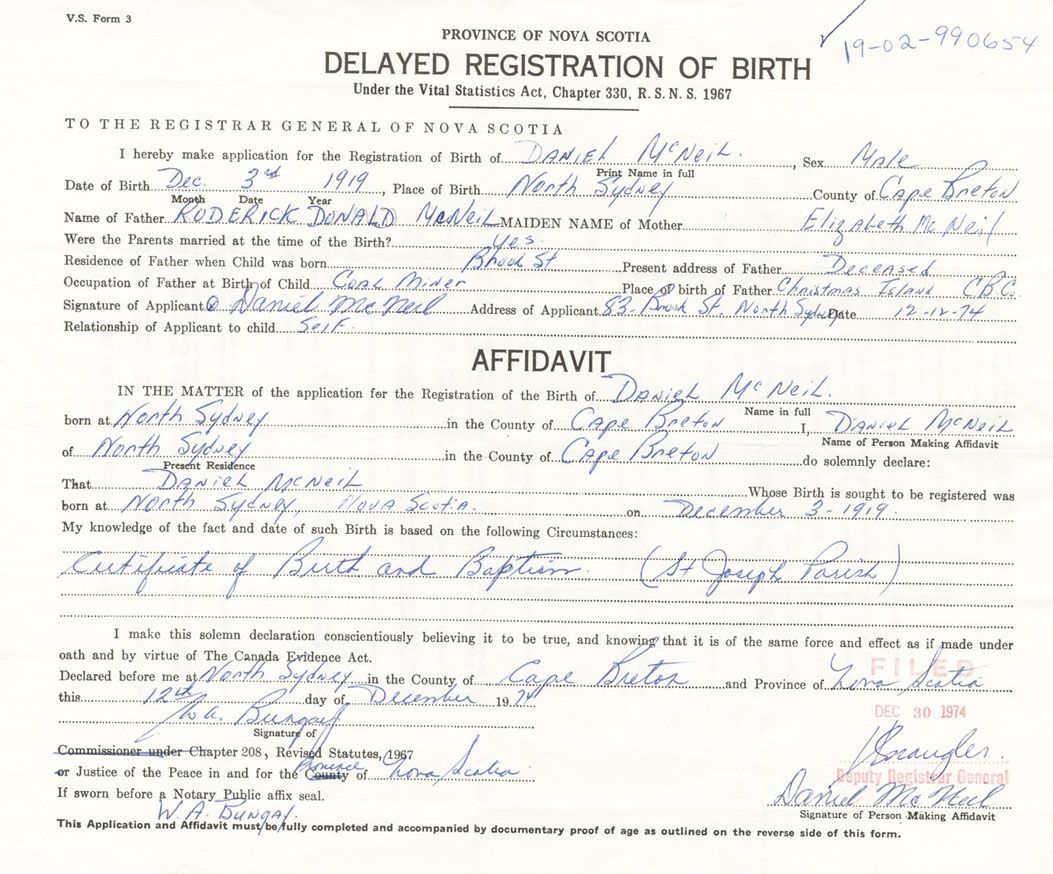 V.S. Form 3
19-02-990654
PROVINCE OF NOVA SCOTIA
DELAYED REGISTRATION OF BIRTH
Under the Vital Statistics Act, Chapter 330, R.S.N.S. 1967
TO THE REGISTRAR GENERAL OF NOVA SCOTIA
I hereby make application for the Registration of Birth of DANIEL McNEIL. , Sex Male
Print Name in full
Date of Birth Dec. 3rd 1919 , Place of Birth North Sydney County of Cape Breton
Month Date Year
Name of Father RODERICK DONALD McNEIL MAIDEN NAME of Mother Elizabeth McNeil
Were the Parents married at the time of the Birth? Yes.
Residence of Father when Child was born Brook St Present address of Father Deceased
Occupation of Father at Birth of Child Coal Miner Place of birth of Father Christmas Island CBCo.
Signature of Applicant Daniel McNeil Address of Applicant 83- Brook St. North Sydney Date 12-12-74
Relationship of Applicant to child Self.
AFFIDAVIT
IN THE MATTER of the application for the Registration of the Birth of DANIEL McNEIL.
Name in full
born at North Sydney in the County of Cape Breton I, DANIEL McNEIL
Name of Person Making Affidavit
of North Sydney in the County of Cape Breton do solemnly declare:
Present Residence
That DANIEL McNEIL Whose Birth is sought to be registered was
born at North Sydney, Nova Scotia. on December 3-1919.
My knowledge of the fact and date of such Birth is based on the following Circumstances:
Certificate of Birth and Baptism. (St Joseph Parish)
I make this solemn declaration conscientiously believing it to be true, and knowing that it is of the same force and effect as if made under
oath and by virtue of The Canada Evidence Act.
FILED
Declared before me at North Sydney in the County of Cape Breton and Province of Nova Scotia
this 12th day of December 1974
DEC 30 1974
W.A. Bungay
Signature of
Commissioner under Chapter 208, Revised Statutes, 1967
or Justice of the Peace in and for the County Province of Nova Scotia
Deputy Registrar General
If sworn before a Notary Public affix seal.
Daniel McNeil
W.A. BUNGAY.
Signature of Person Making Affidavit
This Application and Affidavit must be fully completed and accompanied by documentary proof of age as outlined on the reverse side of this form.